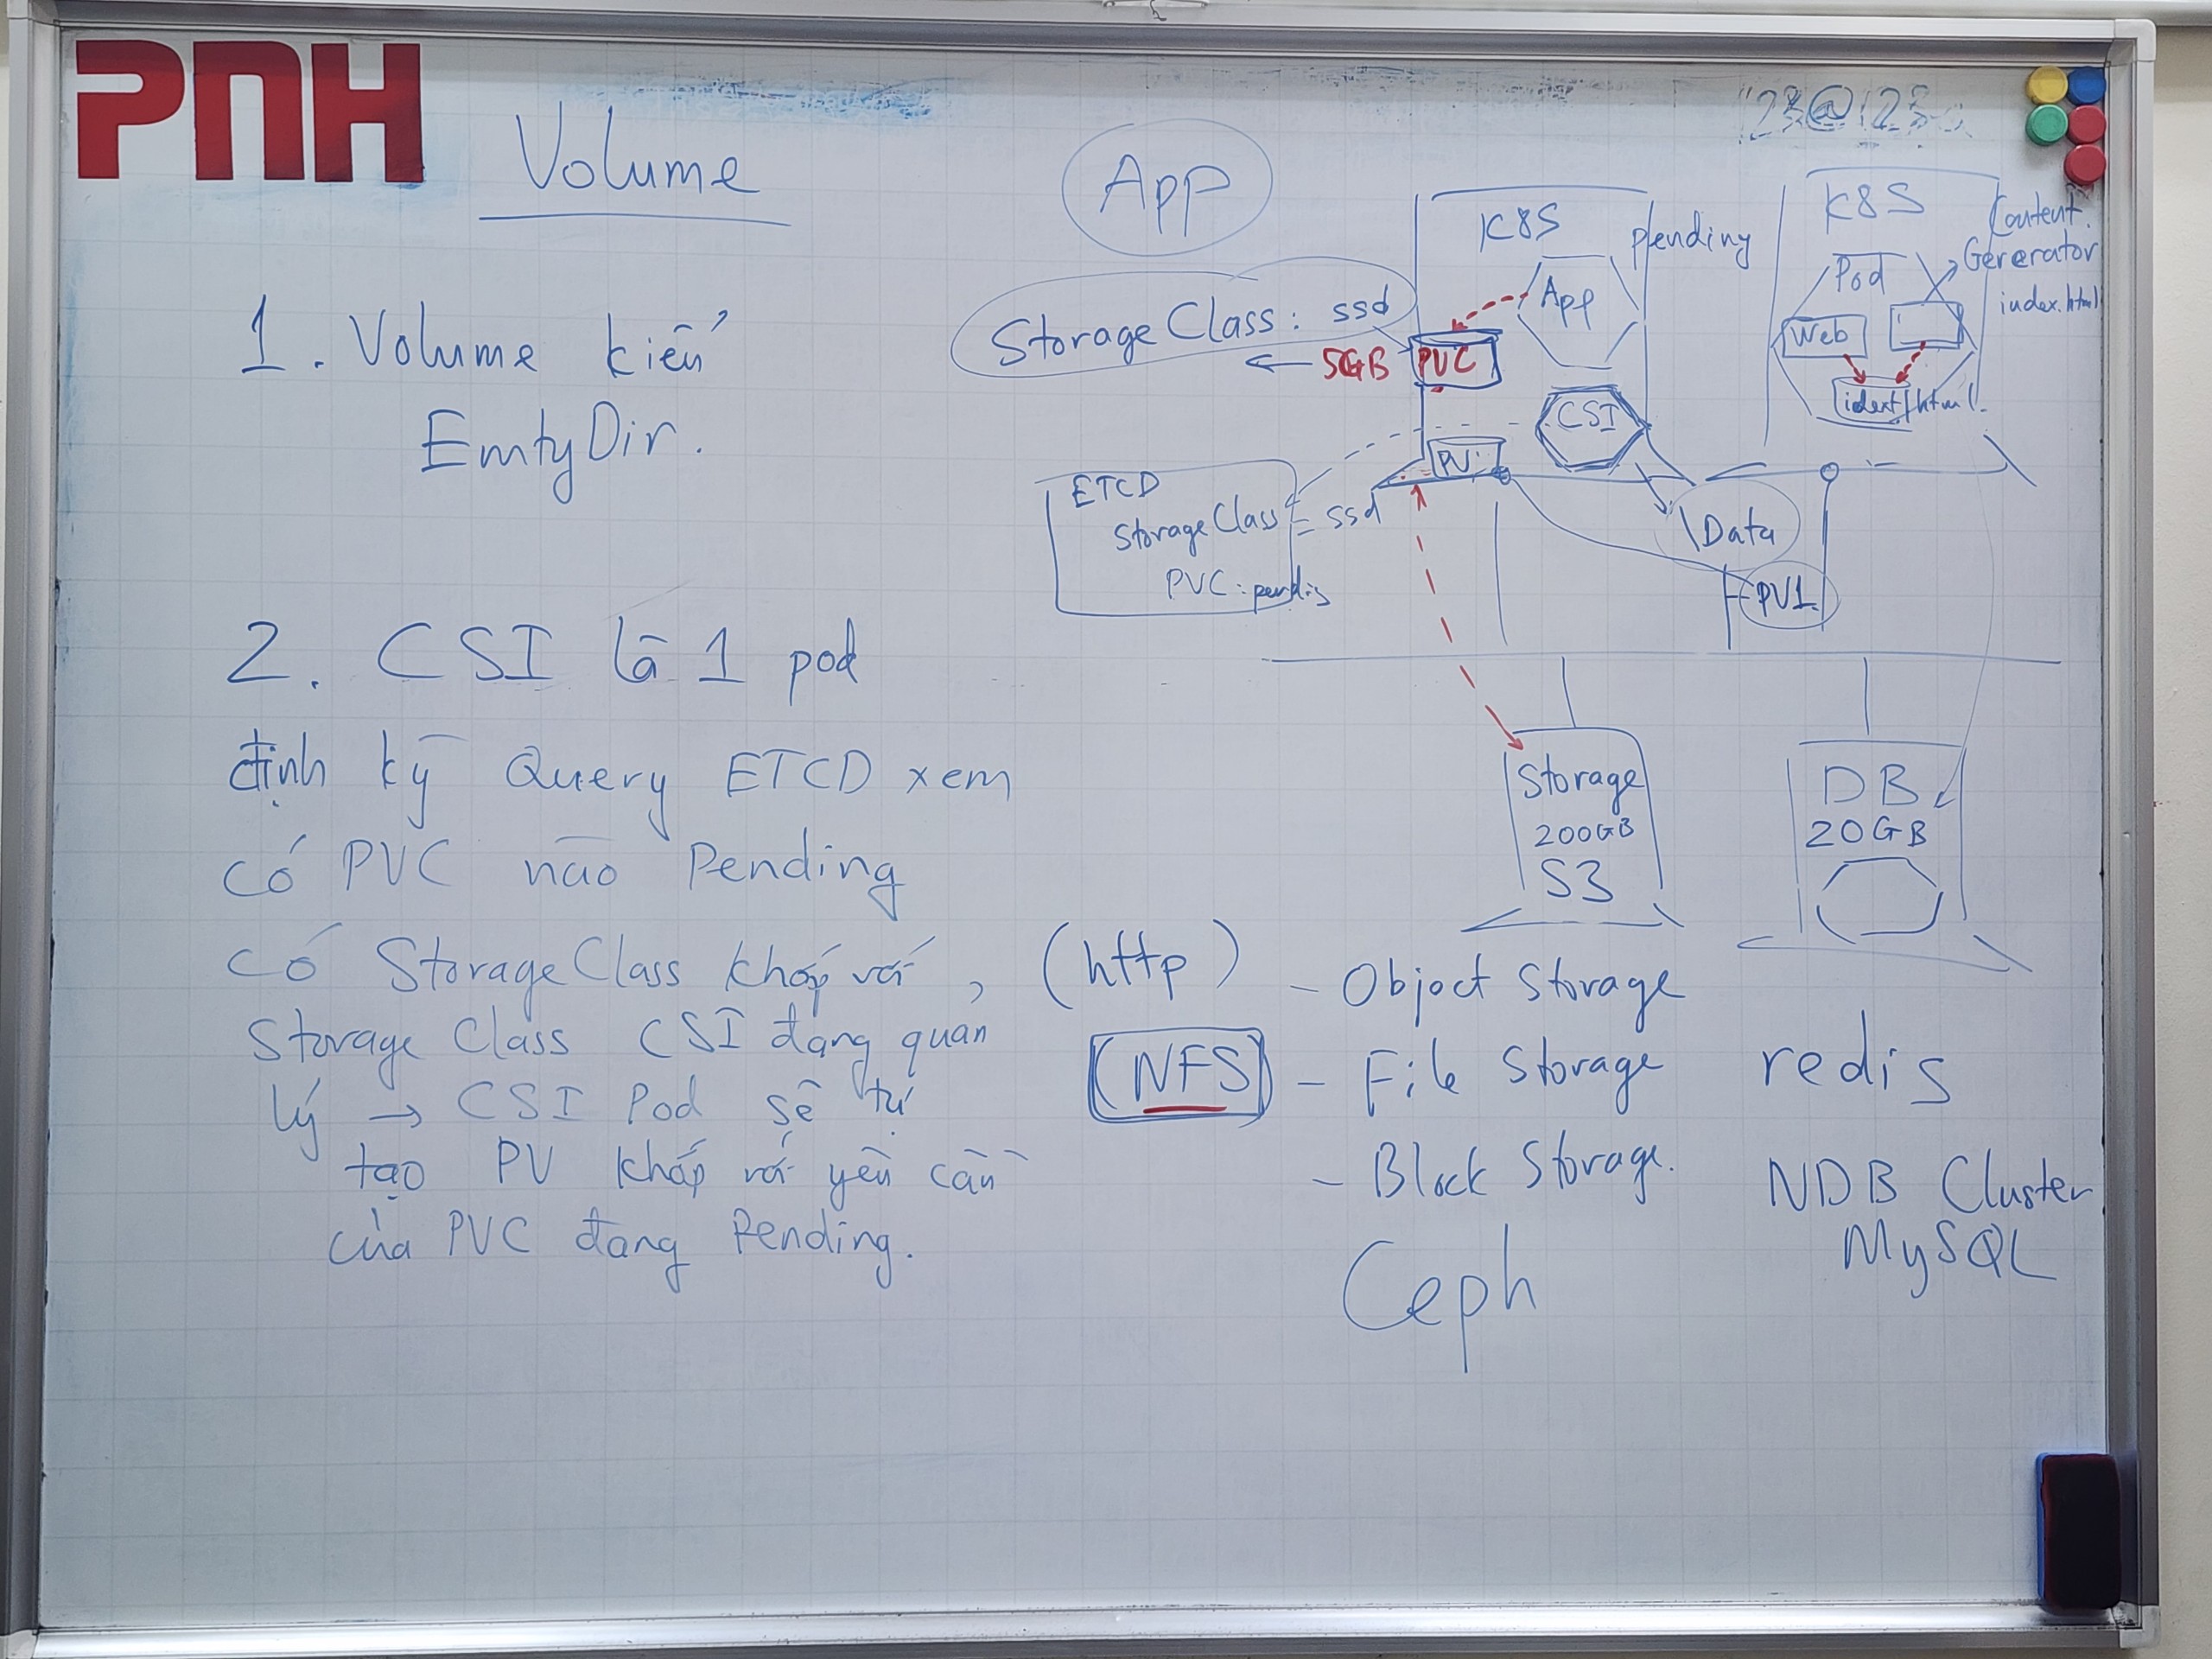 PNH
Volume
1. Volume kiểu
EmtyDir.
2. CSI là 1 pod
định kỳ Query ETCD xem
có PVC nào Pending
có StorageClass khớp với,
Storage Class CSI đang quản
lý → CSI Pod sẽ tự
tạo PV khớp với yêu cầu
của PVC đang Pending.
App
Storage Class: ssd
← 5GB
PVC
K8S
pending
App
CSI
PV
ETCD
StorageClass = ssd
PVC: pendig
\Data
PV1
123@123a
K8S
Content
Gererator
index.html
Pod
Web
idext/html.
Storage
200GB
S3
DB
20GB
(http) - Object Storage
(NFS) - File Storage
- Block Storage.
Ceph
redis
NDB Cluster
MySQL